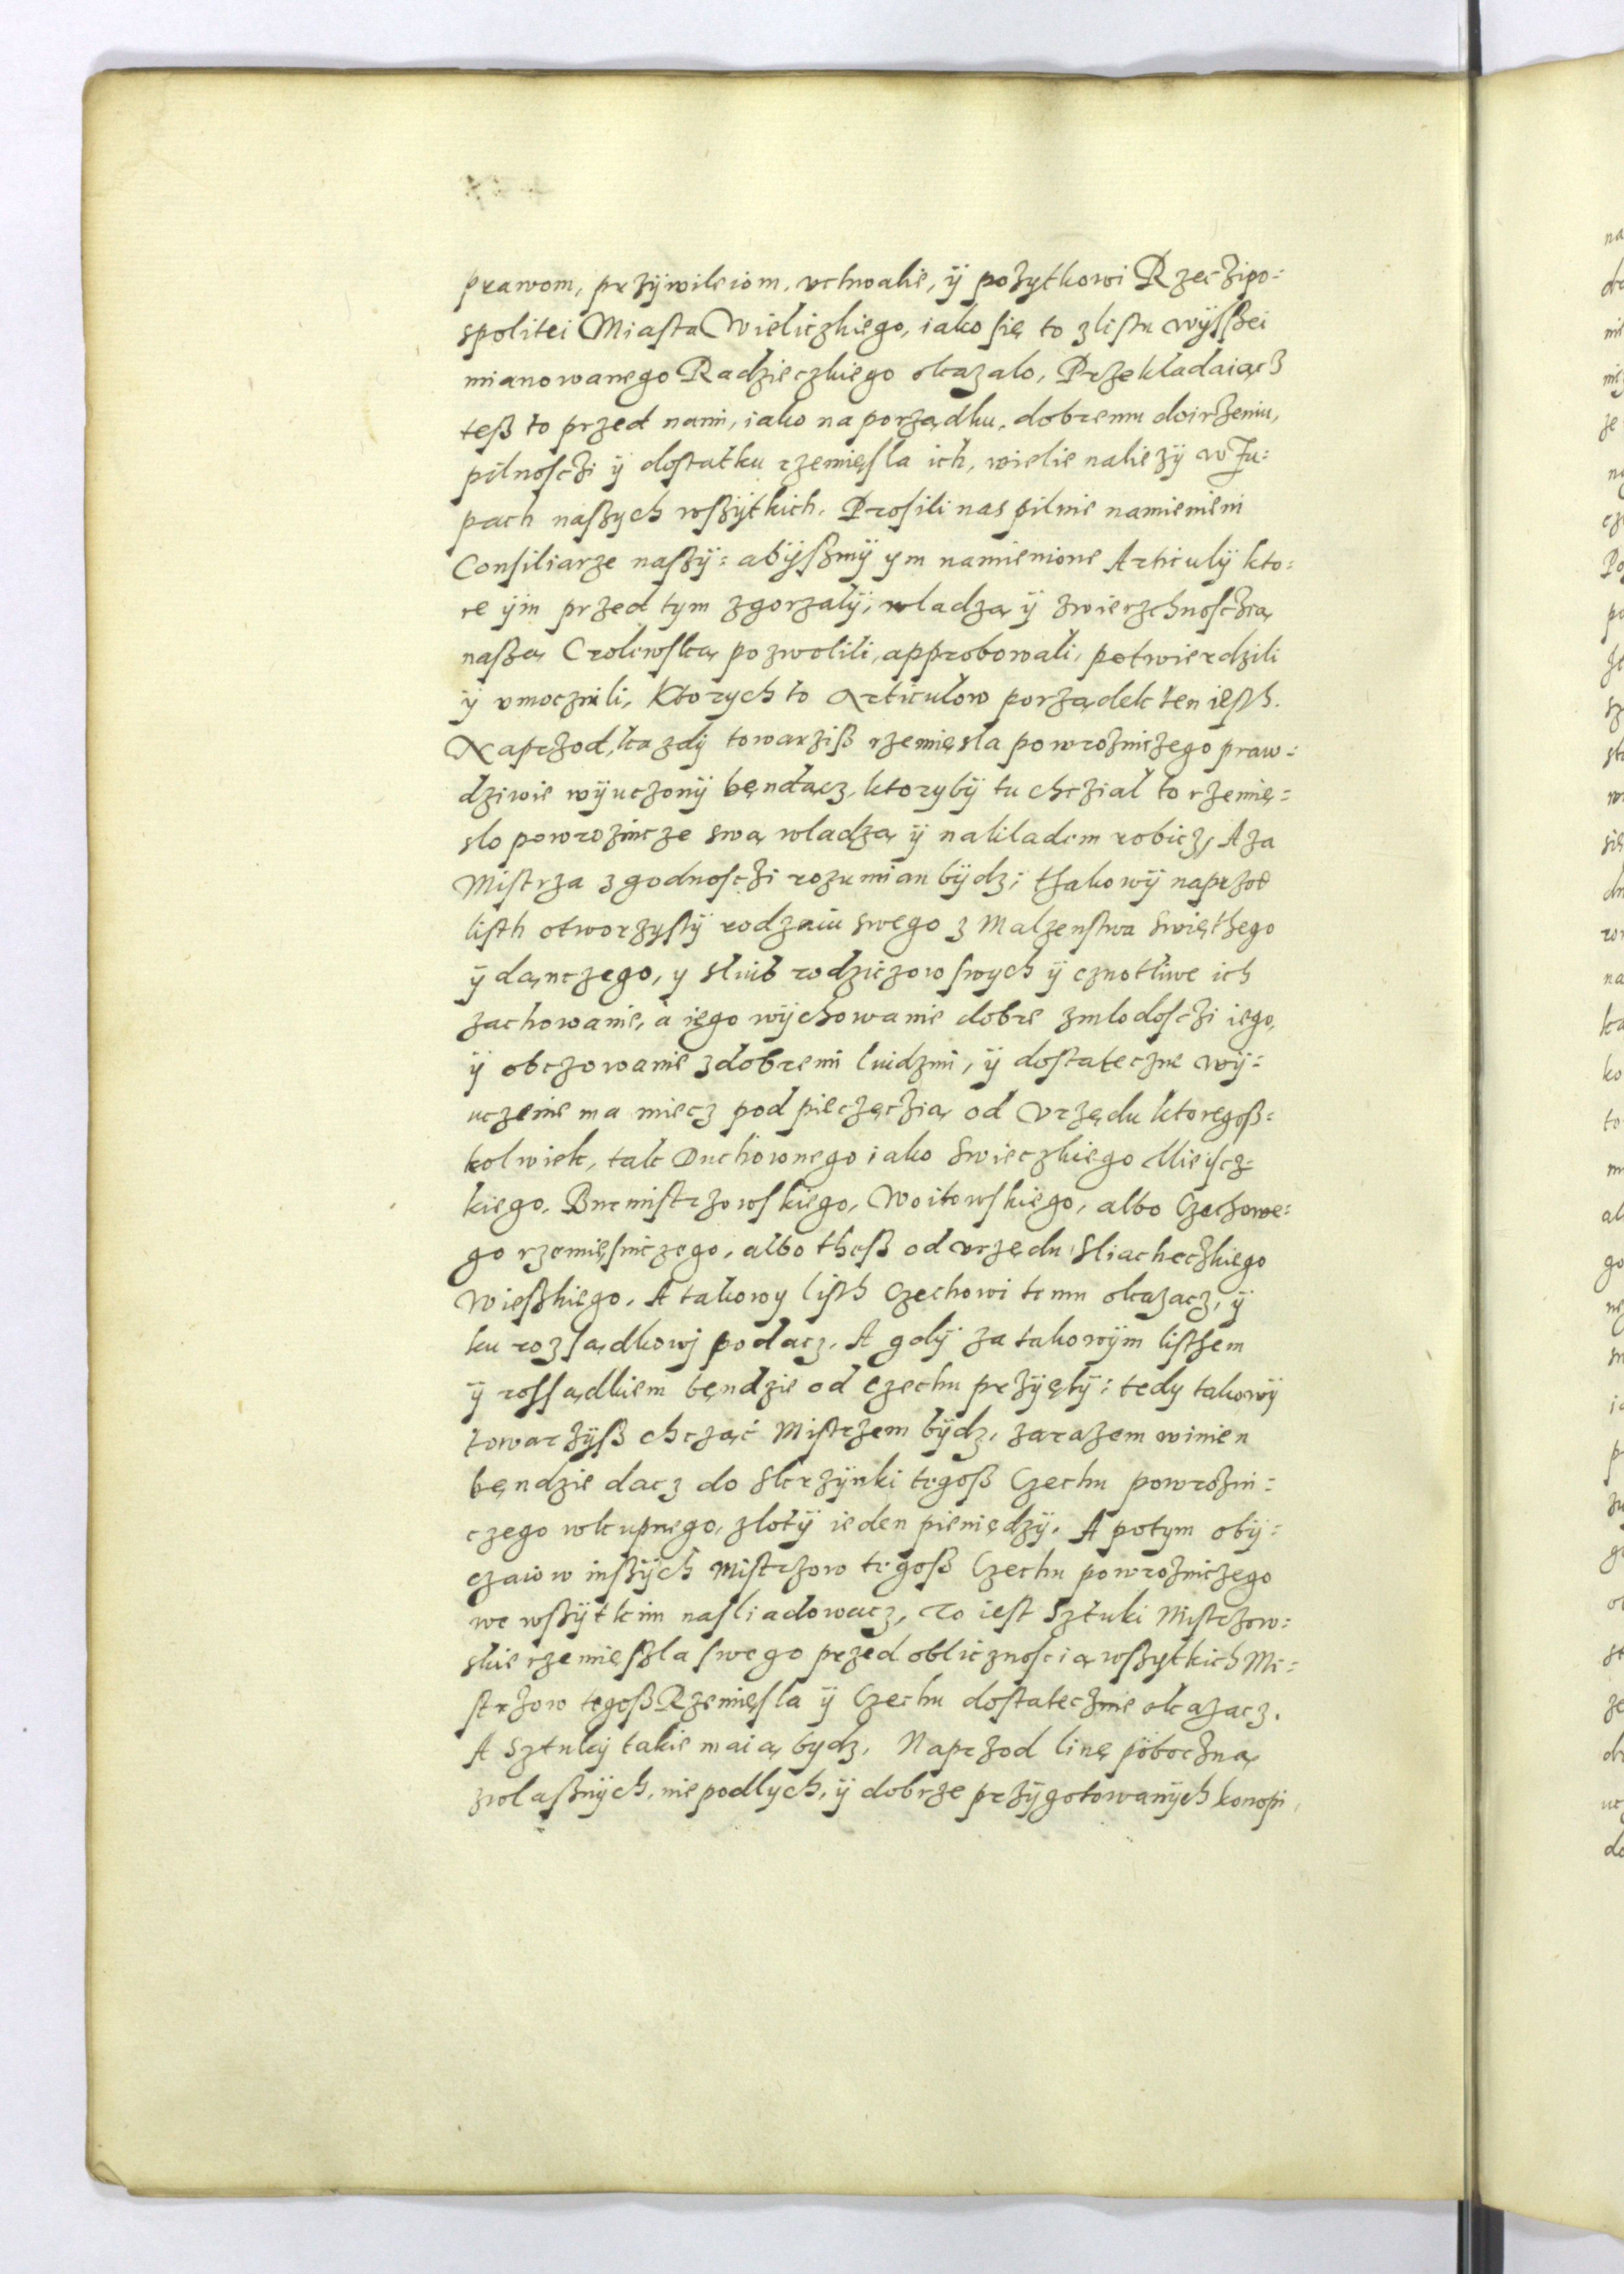 prawom, przÿwileiom, vchwalie, ÿ pożytkowi Rzeczipo=
spolitei Miasta Wieliczkiego, iako się to z listu wÿsszei
mianowanego Radzieczkiego okazalo, Przekladaiącz
tesz to przed nami, iako na porządku, dobremu doirżeniu,
pilnosczi ÿ dostatku rzemięsla ich, wielie należÿ w Żu=
pach naszych wszÿtkich. Prosili nas pilnie namienieni
Consiliarze naszÿ: abÿszmÿ ym namienione Articulÿ kto=
re ÿm przed tym zgorzalÿ, wladzą ÿ zwierzchnoscżią
naszą Crolewską pozwolili, approbowali, potwierdzili
ÿ vmocznili, Ktorych to Articulow porządek ten iesth.
Naprzod, kazdÿ towarzisz rzemięsla powrozniczego praw=
dziwie wÿuczonÿ bęndącz, ktorybÿ tu chcżial to rzemię=
slo powroznicze swą wladzą ÿ nakladem robicz, A za
Mistrza z godnosczi rozumian bÿdz; thakowÿ naprzod
listh otworzystÿ rodzaiu swego z Malzenstwa swięthego
ÿ dąnczego, y slub rodziczow swych ÿ cznotliwe ich
zachowanie, a iego wÿchowanie dobre zmlodosczi iego,
ÿ obczowanie z dobremi luidzmi, ÿ dostateczne wÿ=
uczenie ma miecz pod pieczęczią od Vrzędu ktoregosz=
kolwiek, tak Duchownego iako Swieczkiego Mieiscz=
kiego, Burmistrzowskiego, Woitowskiego, albo Czechowe=
go rzemięsniczego, albo thesz od vrzędu Sliacheczkiego
Wieszkiego. A takowy listh Czechowi temu okazacz, ÿ
ku rozsądkowj podacz. A gdÿ za takowÿm listhem
ÿ rossądkiem bęndzie od czechu przÿętÿ: tedy takowÿ
towarzÿsz chcząć Mistrzem bÿdz, zarazem winien
bęndzie dacz do Skrzÿnki tegosz Czechu powrozni=
czego wkupnego, zlotÿ ieden pieniędzÿ. A potym obÿ=
czaiow inszÿch Mistrzow tegosz Czechu powrozniczego
we wszÿtkim nasliadowacz, To iest Sztuki Mistrzow=
skie rzemięszla swego przed oblicznoscią wszytkich Mi=
strzow tegosz Rzemięsla ÿ Czechu dostatecznie okazacz.
A Sztukj takie maią bydz, Naprzod linę poboczną
z wlasznÿch, nie podlych, ÿ dobrze przÿgotowanÿch konopi,